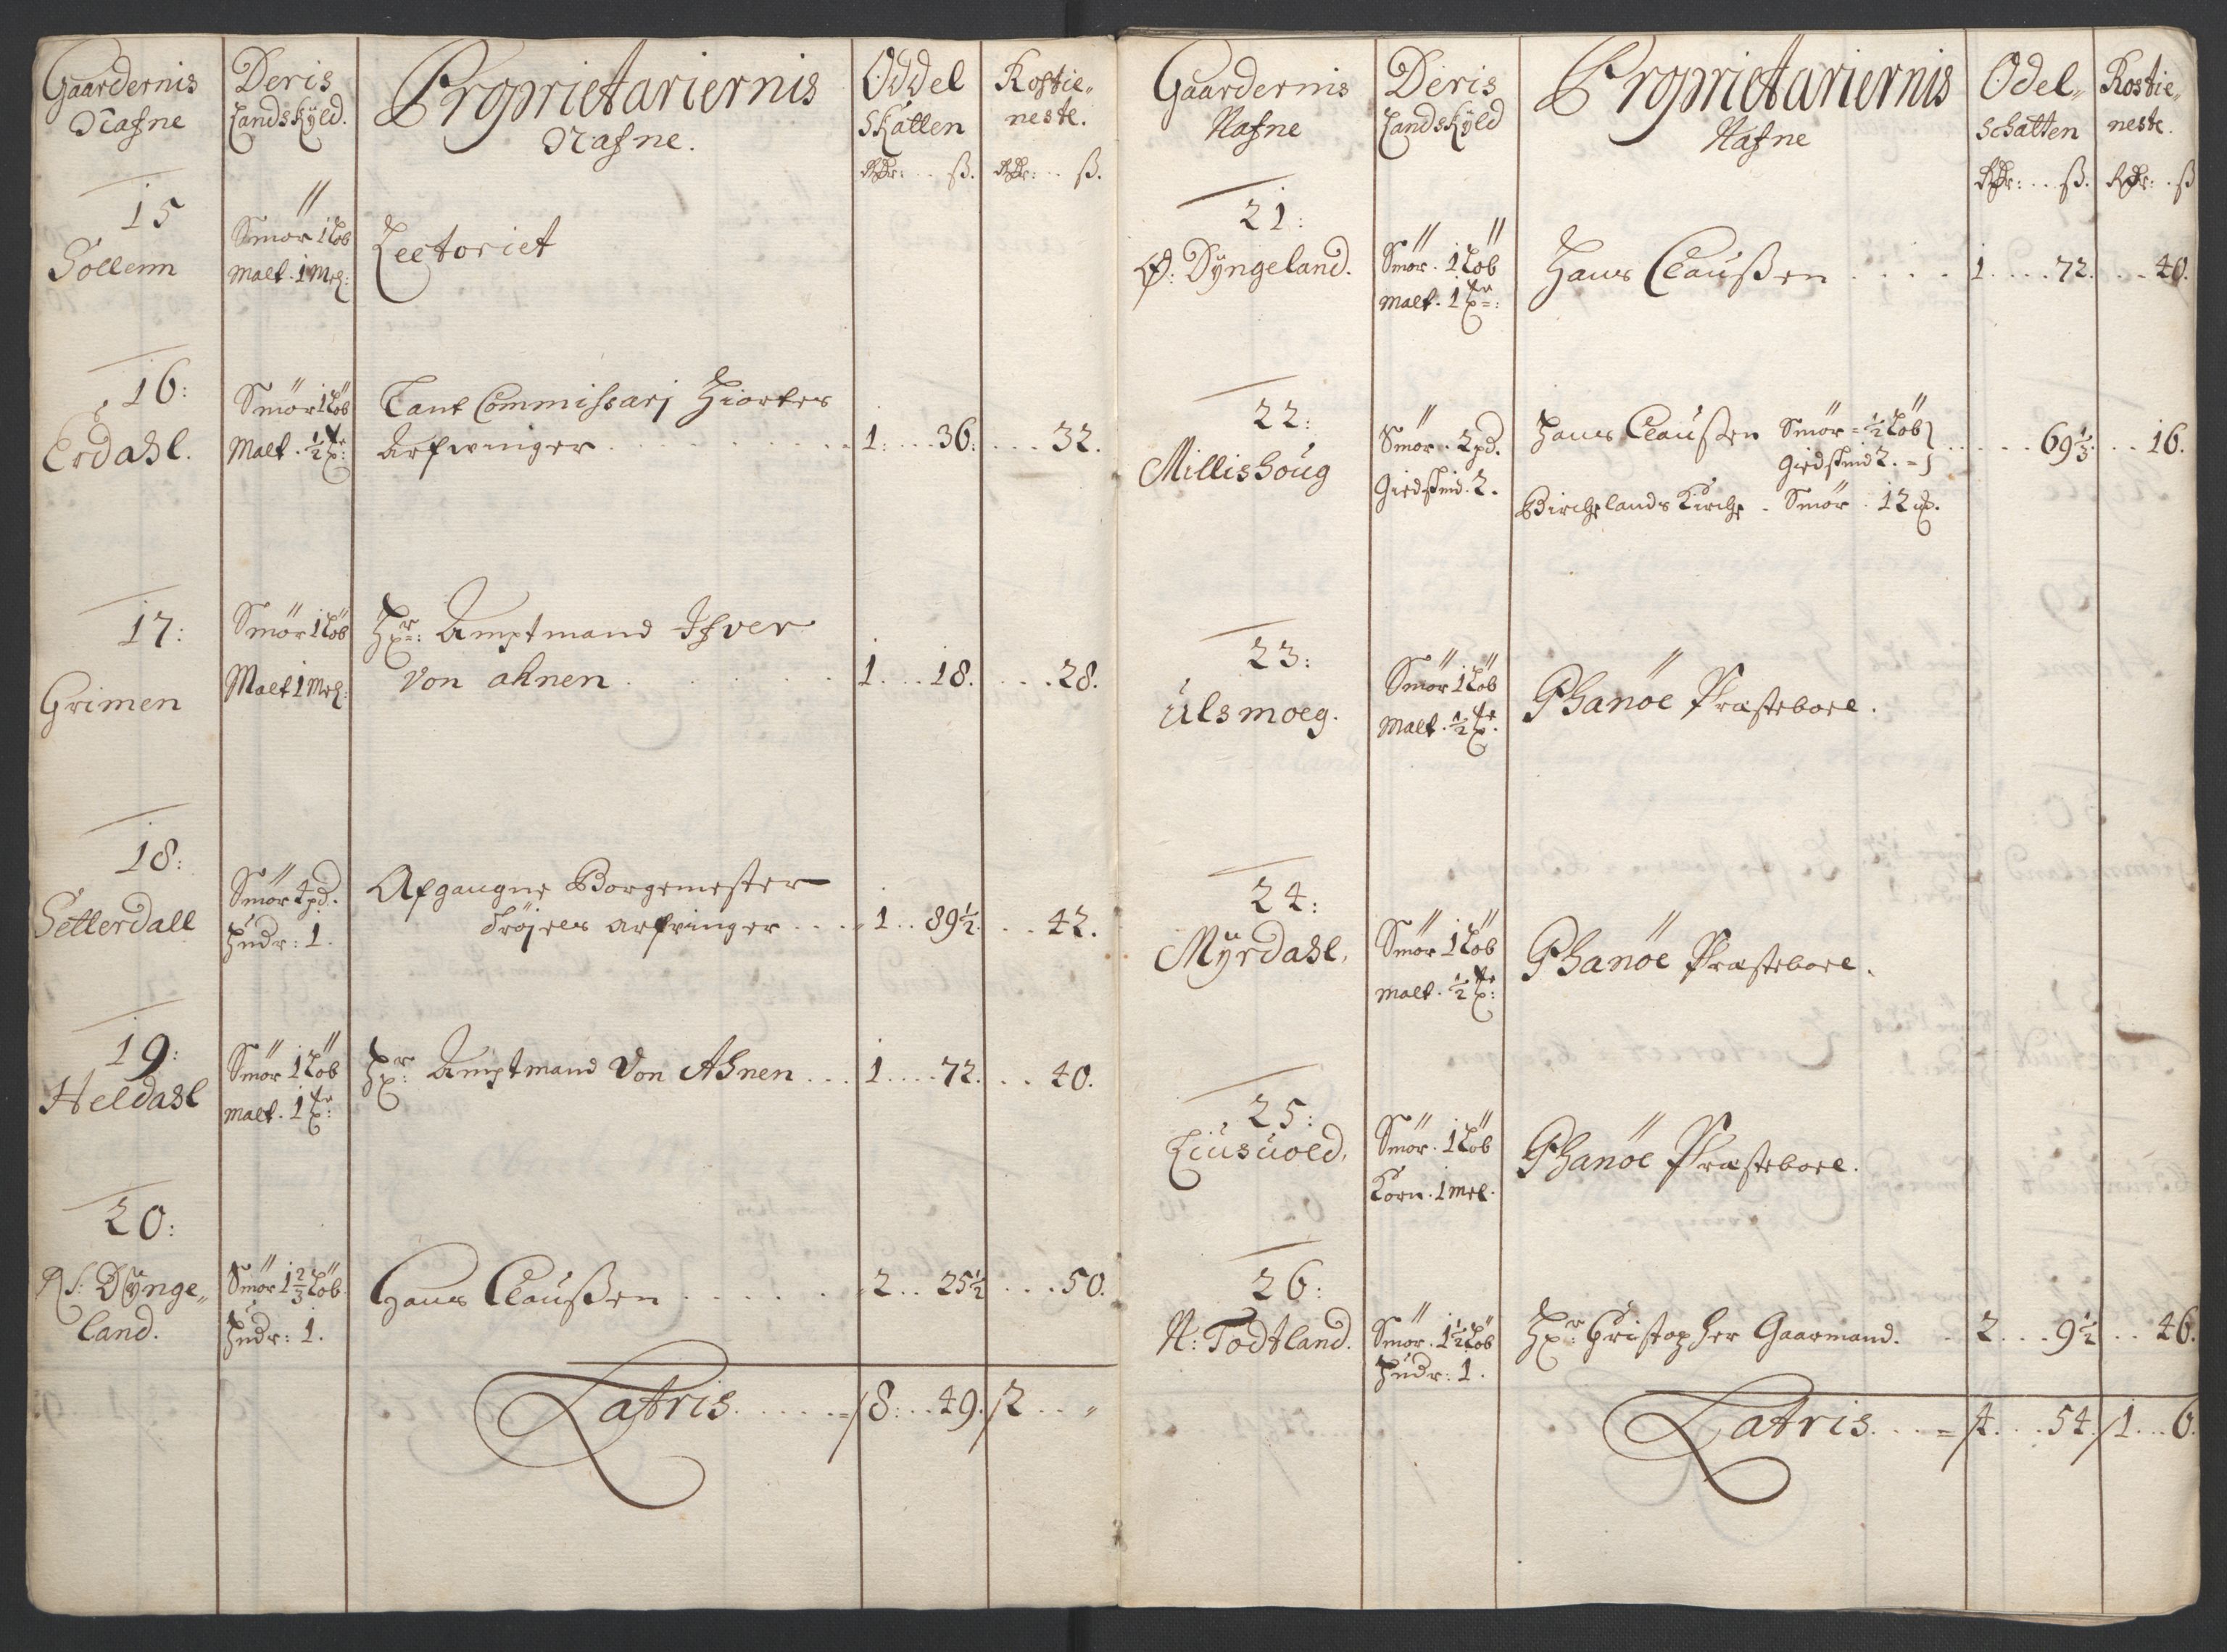 Gaardernis Nafne
Deris Landskÿld.
Proprietariernis Nafne.
Oddel Skatten
Rostie„ neste.
Rdr: . . ß.
Rdr: . . ß.
15
Sollem
Smör 1 Löb
Malt . 1 Mel:
Lectoriet
16:
Erdahl.
Smör 1 Löb
Malt . ½ tr:
Cant Commissarj Hiortes
Arfwinger . . . 1: . . . 36: . . . 32.
17:
Grimen
Smör 1 Löb
Malt 1 Mel:
Hr: Amptmand Ifver
Von ahnen . . . 1 . . . 18. . . . 28.
18:
Setterdall
Smör 4 pd.
Hudr: 1.
Afgangne Borgemester
Tröjels arfvinger . . . 1 . . 89½. . . 42.
19:
Heldahl
Smör 1 Löb
Malt . 1 tr:
Hr: Amptmand Von Ahnen . . . 1 . . . . 72. . . 40.
20:
N: Dÿnge„
land.
Smör 1⅔ Löb.
Hudr: 1.
Hans Claußen . . . . . . 2 . . 25½ . . . 50.
Latris. . . . . = / 8: . . 49. / 2 . . „
Gaardernis Nafne
Deris Landskÿld
Proprietariernis Nafne
Odel„ schatten
Rostie„ neste.
Rdr: . . ß.
Rdr: . ß
21:
Ø: Dÿngeland.
Smör . 1 Löb
Malt . 1 tr:
Hans Claußen . . . . 1 . . . . 72. . . 40.
22:
Millishoug
Smör . 2 pd.
Giedskind . 2.
Hans Claußen Smör = ½ Löb
Giedskind 2. = } . . . . . 69⅓. . . 16.
Birchelands Kirche . Smör . 12 ℔.
23:
Ulsmoeg.
Smör 1 Löb
Malt . ½ tr.
Phanöe Præsteboel.
24:
Mÿrdahl.
Smör 1 Löb
Malt . ½ tr:
Phanöe Præsteboel.
25:
Liusuold.
Smör . 1 Löb
Korn . 1 Mel.
Phanöe Præsteboel.
26:
N: Todtland.
Smör . 1½ Löb
Hudr: 1.
Hr: Christopher Gaarmand. . 2 . . . 9½ . . 46.
Latris. . . . = / 4. . . 54. / 1 . . . 6.